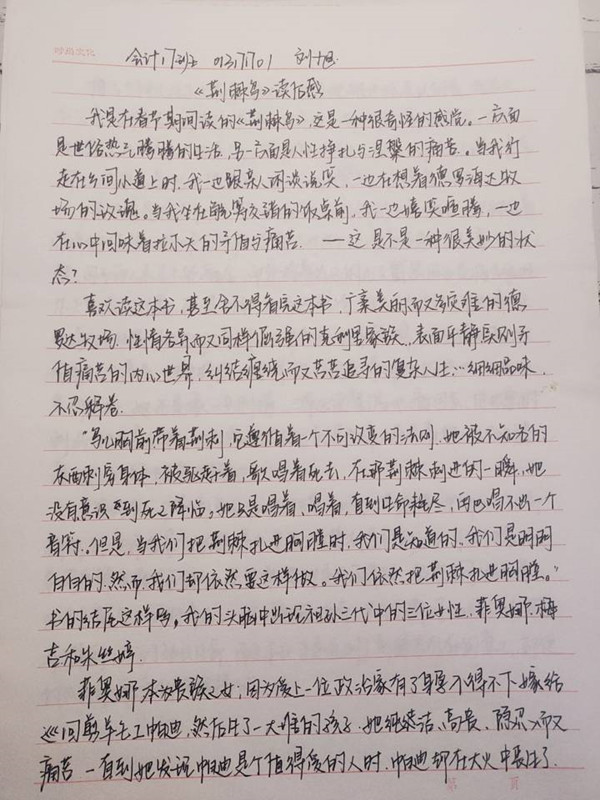 会计17班 01317701 刘旭
《荆棘鸟》读后感
我是在春节期间读的《荆棘鸟》,这是一种很奇怪的感觉。一方面
是世俗热气腾腾的生活,另一方面是人性挣扎与涅槃的痛苦。当我行
走在乡间小道上时,我一边跟亲人闲谈说笑,一边在想着德罗海达牧
场的玫瑰。当我坐在觥筹交错的饭桌前,我一边嬉笑喧腾,一边
在心中回味着拉尔夫的矛盾与痛苦.——这是不是一种很美妙的状
态?
喜欢读这本书,甚至舍不得看完这本书,广袤美丽而又多灾难的德
罗达牧场,性情各异而又同样倔强的克利里家族,表面平静实则矛
盾痛苦的内心世界,纠结缠绕而又苦苦追寻的复杂人生…细细品味,
不忍释卷.
"鸟儿胸前带着荆刺,它遵循着一个不可改变的法则,她被不知名的
东西刺穿身体,被驱赶着,歌唱着死去,在那荆棘刺进的一瞬,她
没有意识到死之降临。她只是唱着、唱着,直到生命耗尽,再也唱不出一个
音符。但是,当我们把荆棘扎进胸膛时,我们是知道的,我们是明明
白白的,然而我们却依然要这样做。我们依然把荆棘扎进胸膛。"
书的结尾这样写。我的头脑中出现祖孙三代中的三位女性,菲奥娜、梅
吉和朱丝婷.
菲奥娜本为贵族之女,因为爱上一位政治家有了身孕不得不下嫁给
剪羊毛工帕迪,然后生了一大堆的孩子.她纯洁、高贵、隐忍、而又
痛苦.一直到她发现帕迪是个值得爱的人时,帕迪却在大火中丧生了.
第 页